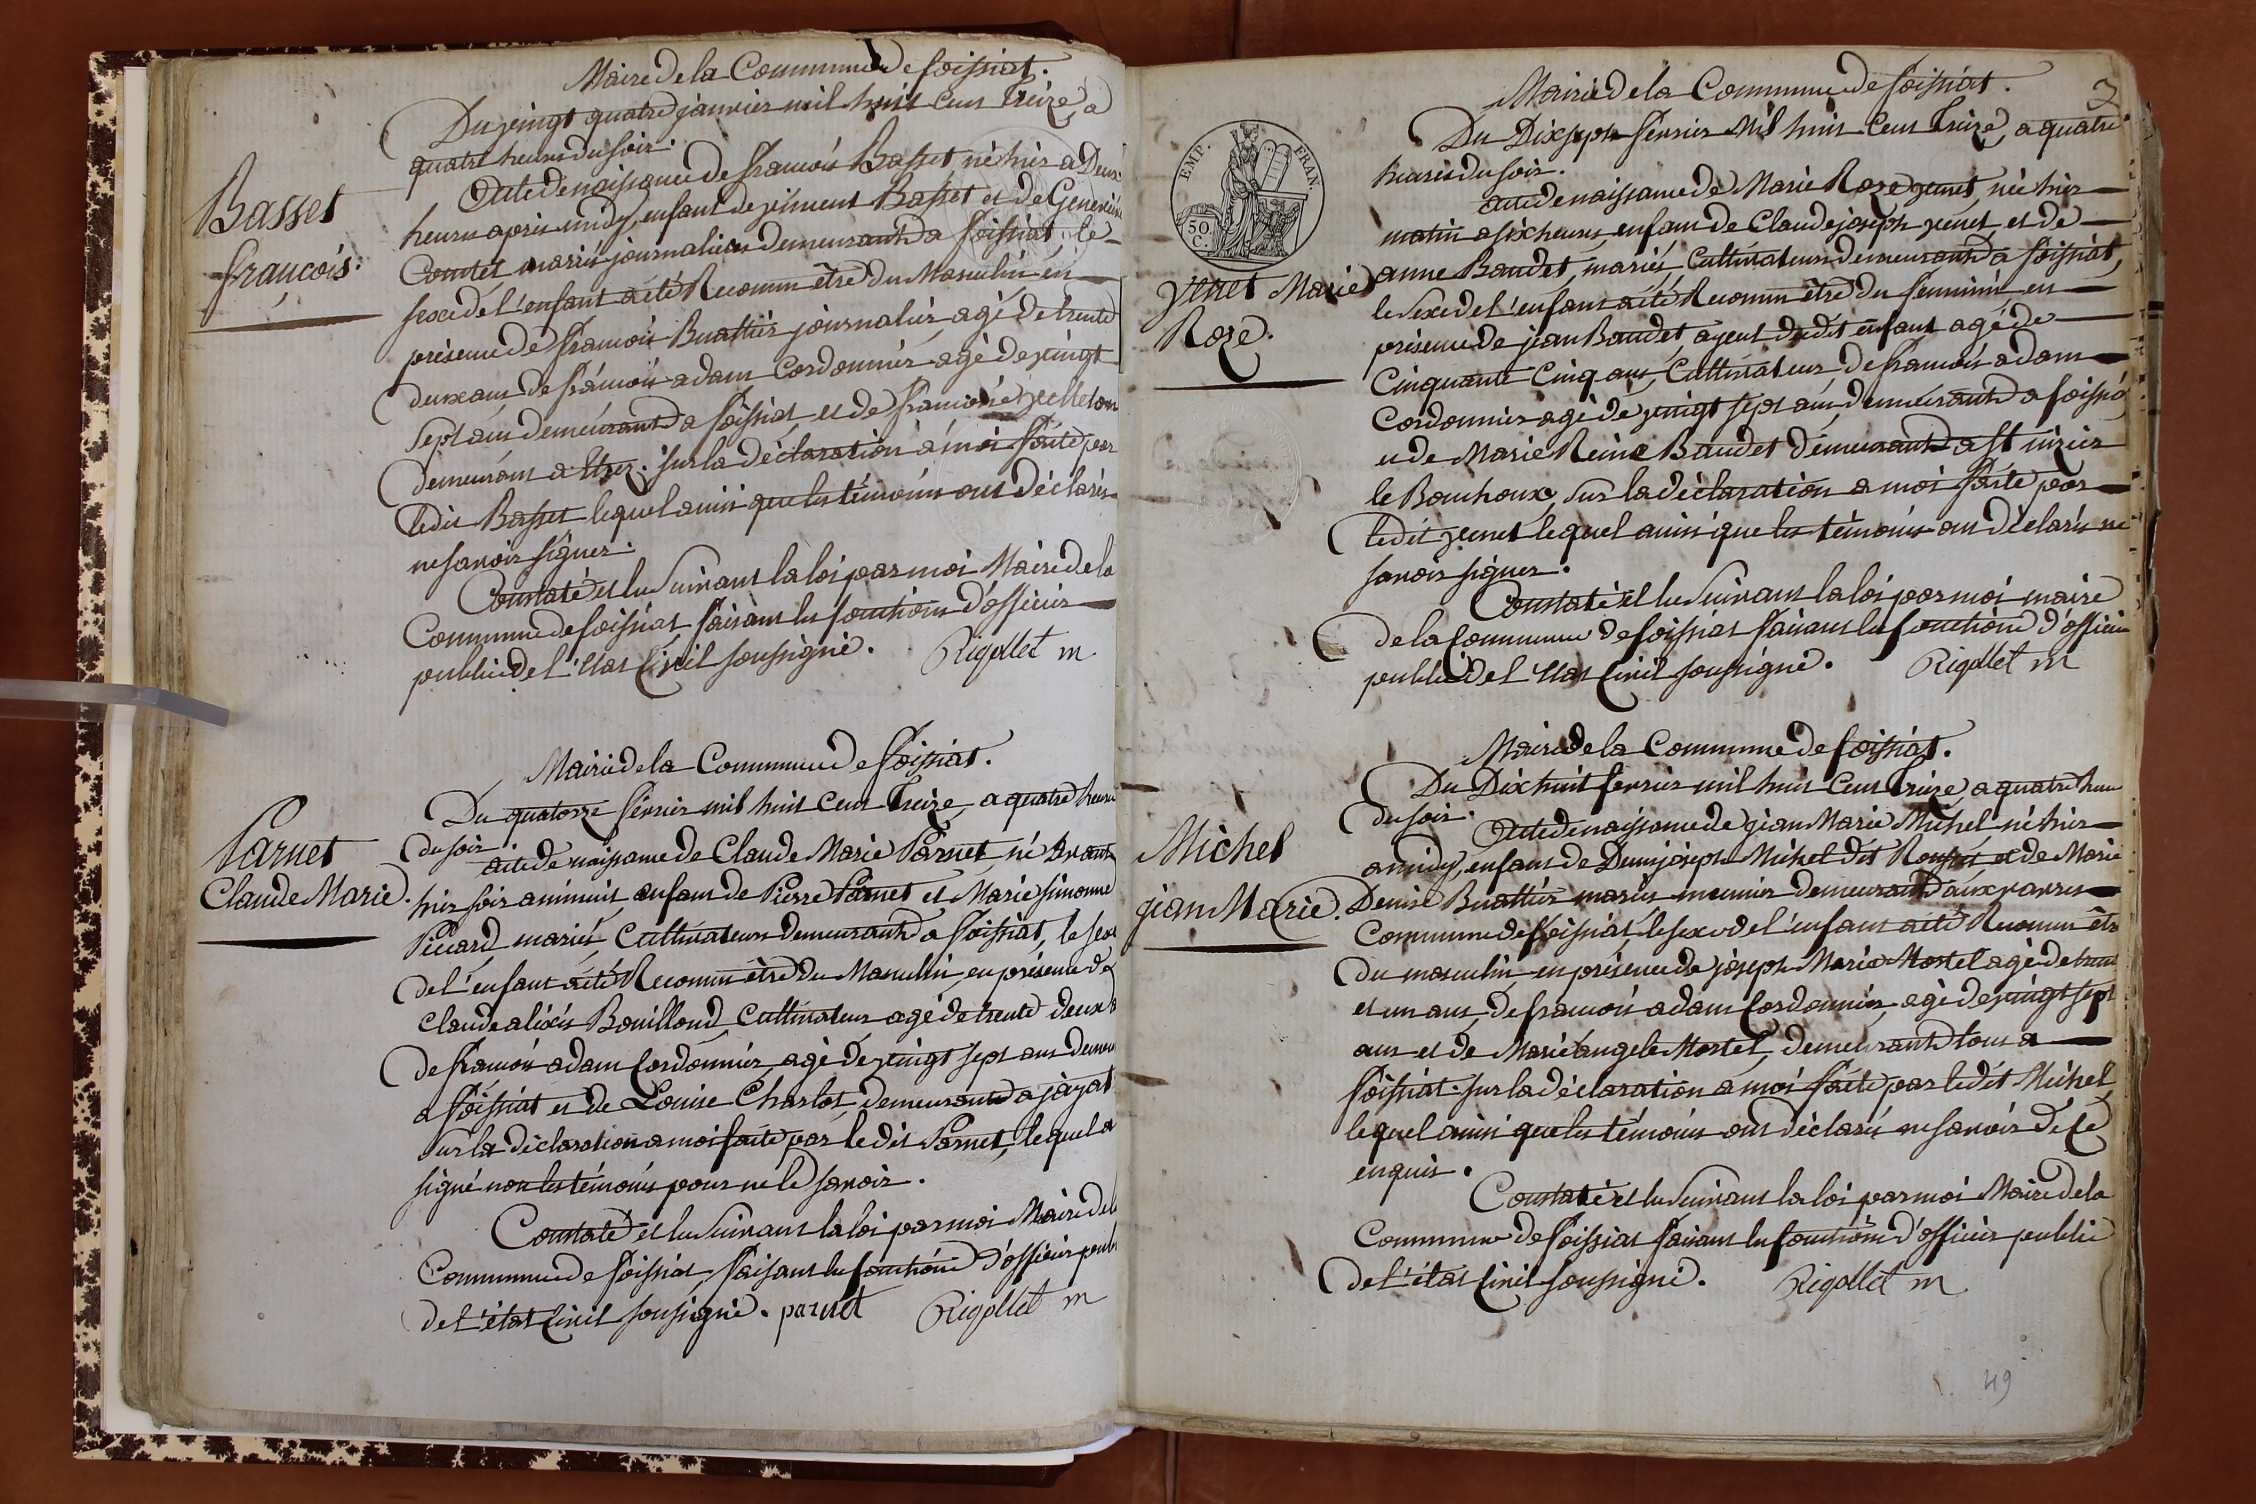 Mairie de la Commune de foissiat.
Du vingt quatre janvier mil huit cent treize, a
quatre heures du soir.
Acte de naissance de francois Basset né hier a Deux
heures après midy, enfant de viment Basset et de Genevieve
Comtet mariés journaliers demeurant a foissiat, le
sexe de l'enfant a été Reconnu être du Masculin en
présence de francois Buattier journalier agé de trente
deux ans, de francois adam Cordonnier agé de vingt
sept ans demeurant a foissiat, et de francoise velleton
demeurant a Etrez. sur la déclaration a moi faite par
ledit Basset lequel ainsi que les témoins ont déclarés
ne savoir signer.
Constaté et lu suivant la loi par moi Maire de la
Commune de foissiat faisant les fonctions d'officier
public de l'Etat Civil soussigné. Rigollet m
Basset
françois.
Mairie de la Commune de foissiat.
Du quatorze février mil huit Cent treize, a quatre heures
du soir.
acte de naissance de Claude Marie Parnet, né avant
hier soir a minuit, enfant de Pierre Parnet et Marie Simonne
Piccard, mariés, Cultivateurs demeurant a foissiat, le sexe
de l'enfant a été Reconnu être du Masculin, en présence de
Claude alixis Bouilloud, Cultivateur agé de trente deux a
de francois adam Cordonnier, agé de vingt sept ans demeu
a foissiat et de Louise Charlot, demeurante a jayat
sur la déclaration a moi faite par le dit Parnet, lequel a
signé non les témoins pour ne le savoir.
Constaté et lu suivant la loi par moi Maire de la
Commune de foissiat, faisant les fonctions d'officier publ
de l'état Civil soussigné. parnet Rigollet m
Parnet
Claude Marie.
3
Mairie de la Commune de foissiat.
Du Dix sept fevrier Mil huit Cent treize, a quatre
heures du soir.
acte de naissance de Marie Roze yenet, née hier
matin a six heures, enfant de Claude joseph yenet, et de
anne Baudet, mariés, Cultivateurs demeurant a foissiat,
le sexe de l'enfant a été Reconnu être du feminin en
présence de jean Baudet, ayeul dudit enfant agé de
Cinquante Cinq ans, Cultivateur, de francois adam
Cordonnier agé de vingt sept ans, demeurant a foissia
et de Marie Reine Baudet demeurant a St nizier
le Bouchoux, sur la déclaration a moi faite par
ledit yenet lequel ainsi que les témoins ont déclarés ne
savoir signer.
Constaté et lu suivant la loi par moi maire
de la Commune de foissiat faisant les fonctions d'officier
public de l'Etat Civil soussigné. Rigollet m
EMP. FRAN.
50.
C.
yenet Marie
Roze.
Mairie de la Commune de foissiat.
Du Dix huit fevrier mil huit Cent treize a quatre heure
du soir.
Acte de naissance de gian Marie Michel né hier
a midy, enfant de Denis joseph Michel dit et de Marie
Denise Buattier mariés meunier demeurant aux
Commune de foissiat, le sexe de l'enfant a été Reconnu être
du masculin, en présence de joseph Marie Mortel agé de trente
et un ans, de francois adam Cordonnier, agé de vingt sept
ans et de Marie angele Mortel, demeurant tous a
foissiat. sur la déclaration a moi faite par ledit Michel,
lequel ainsi que les témoins ont déclarés ne savoir de ce
enquis.
Constaté et lu suivant la loi par moi Maire de la
Commune de foissiat faisant les fonctions d'officier public
de l'état Civil soussigné. Rigollet m
Michel
gian Marie.
49